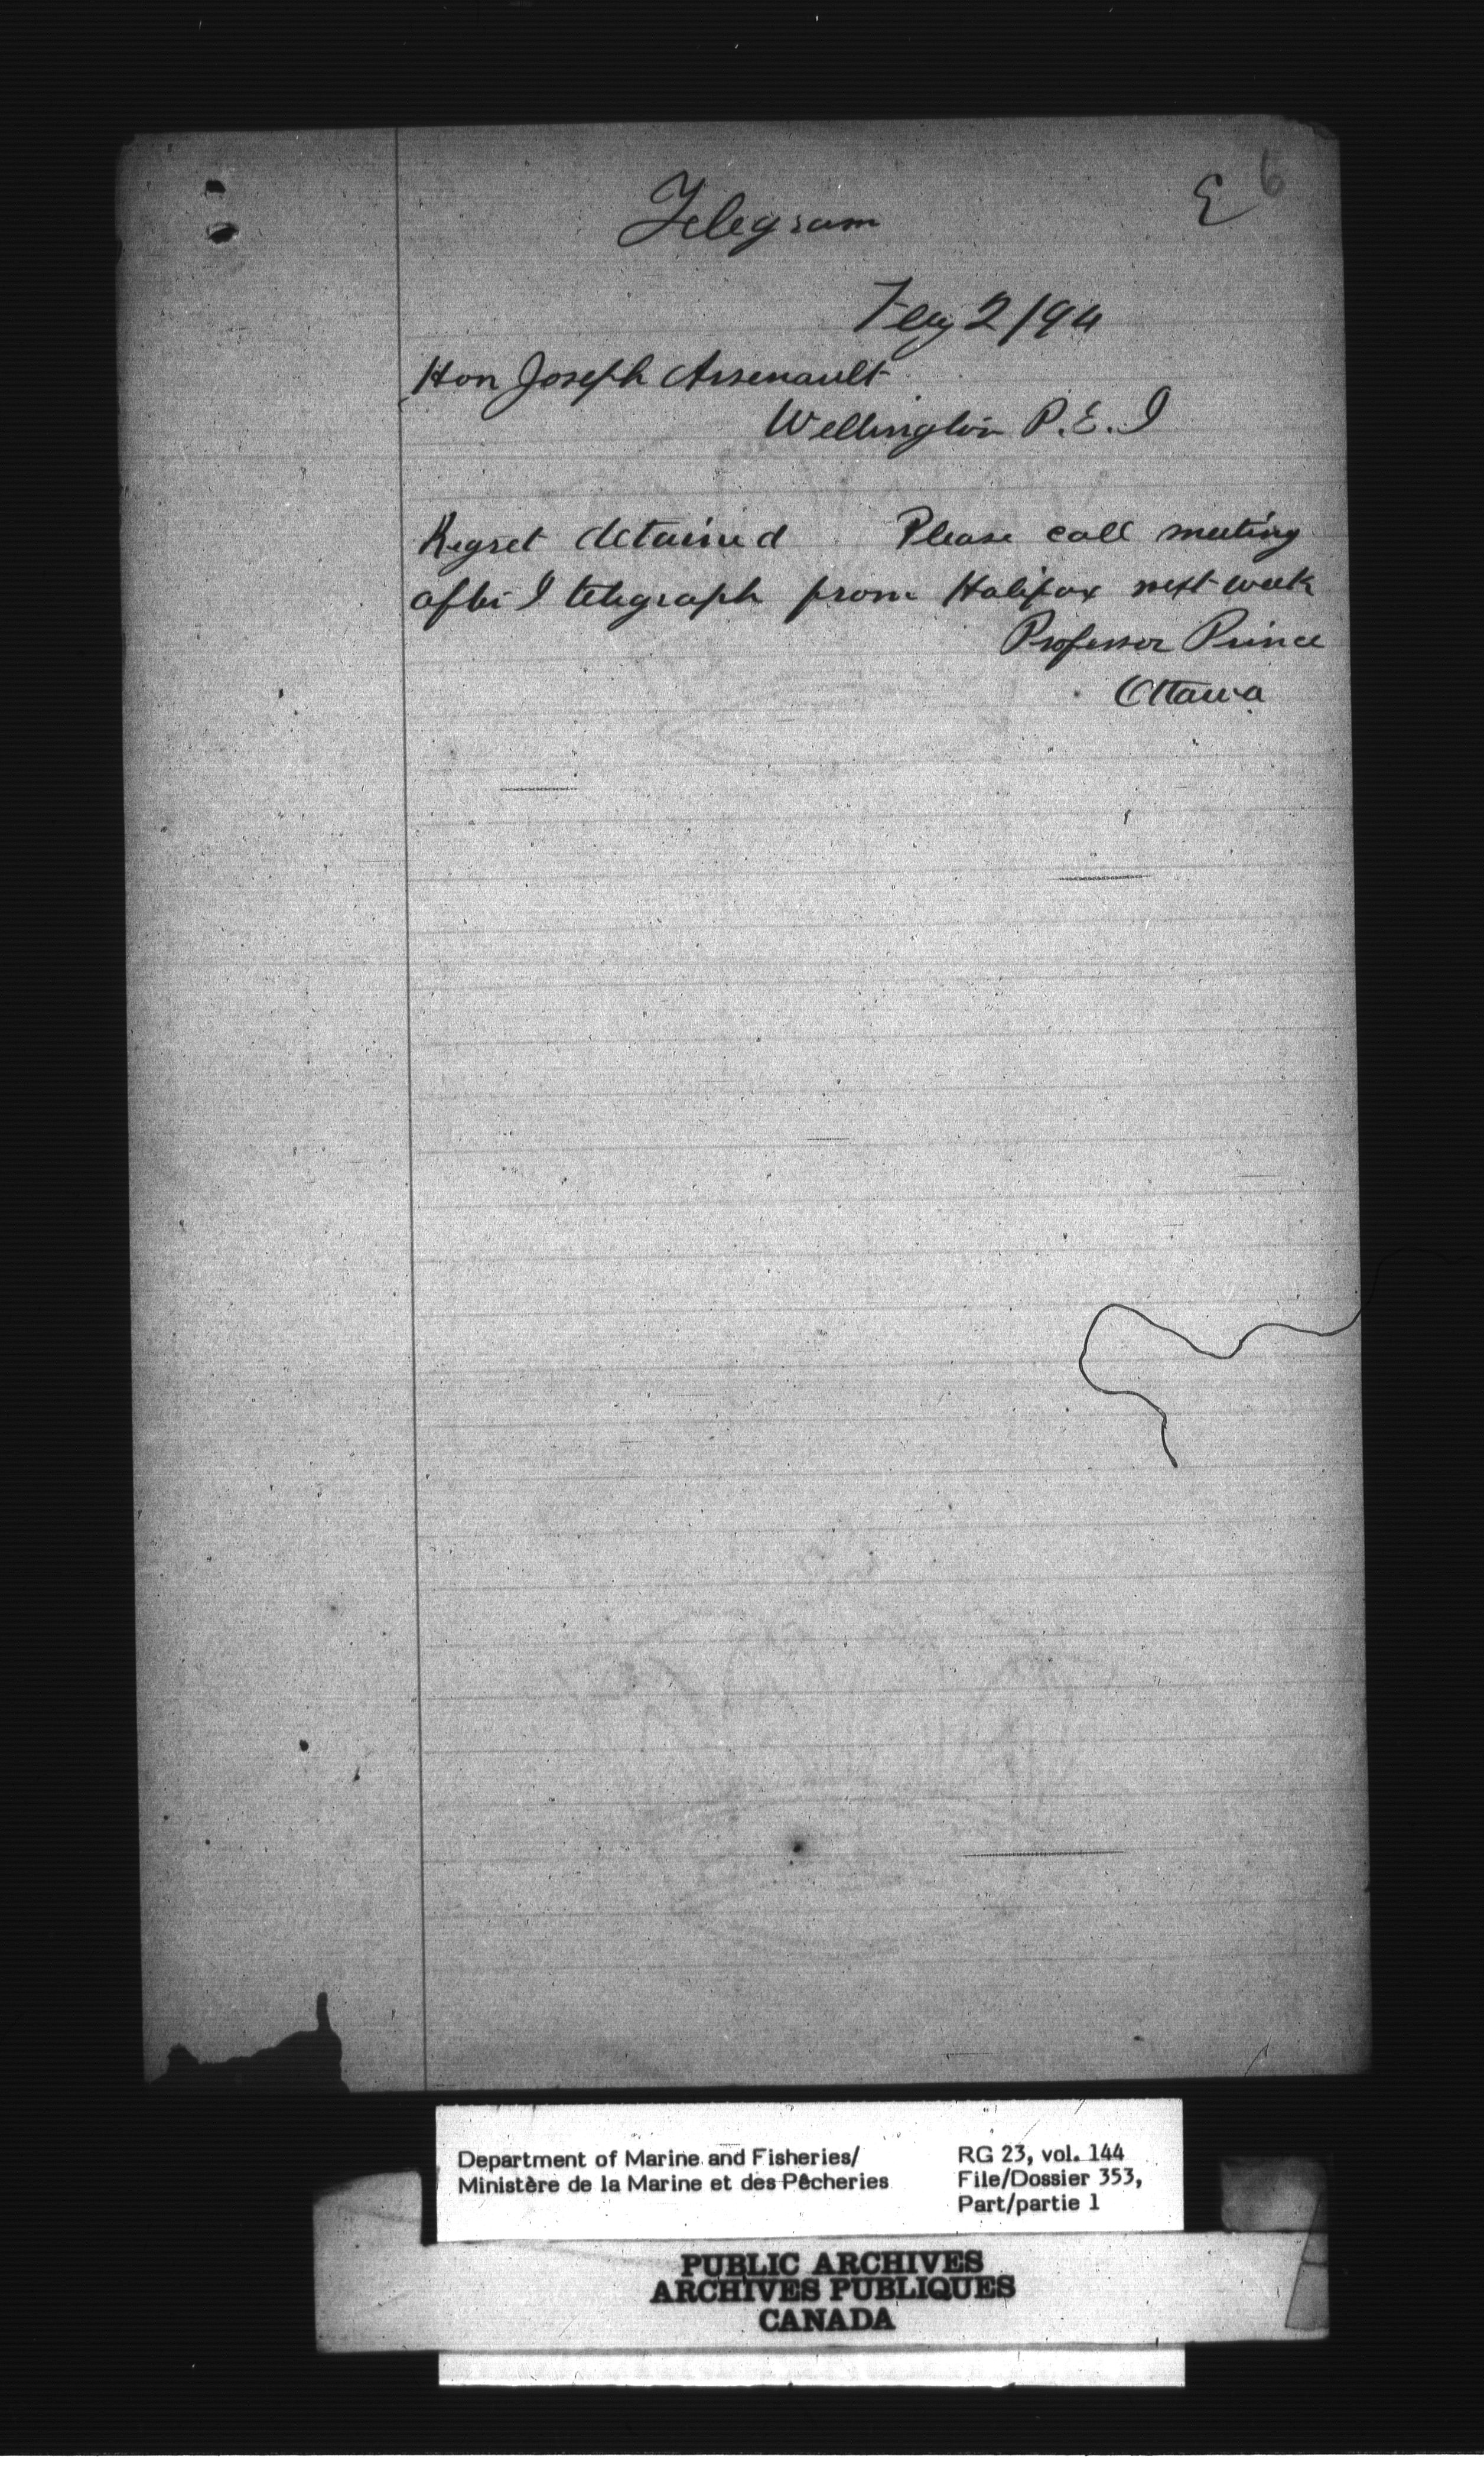 E 6
Telegram
Feby 2/94
Hon Joseph Arsenault
Wellington P.E.I
Regret detained Please call meeting
after I telegraph from Halifax next week
Professor Prince
Ottawa
Department of Marine and Fisheries/
Ministère de la Marine et des Pêcheries
RG 23, vol. 144
File/Dossier 353,
Part/partie 1
PUBLIC ARCHIVES
ARCHIVES PUBLIQUES
CANADA